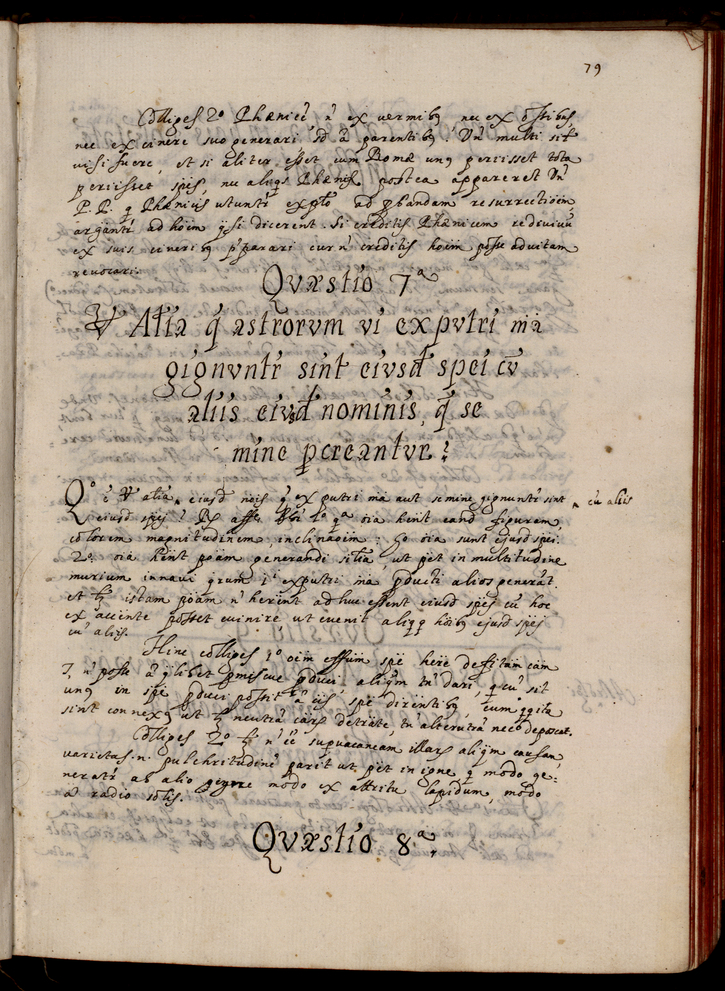 79
Colliges 2º Phænicē n̄ ex vermibq nec ex ossibus,
nec ex cinere suo generari sd ā parentibq: Un̄ multi sīl
visi fuere, et si aliter esset cum Romæ unq periisset tota
periisset spēs, nec aliqs Phænix postea appareret Un̄
P.P. q Phænicis utuntr̄ explō ad pbandam resurrectiōēm
argūntr̄ ad hōīem q̄si dicerent. Si creditis Phænicem redivivū
ex suis cineribq pparari cur n̄ creditis hoīem posse ad vitam
revocari.
Qvæstio 7ª
V̄ Alīa q̄ astrorvm vi ex pvtri mā
gignvntr̄ sint eivsd spēi cv̄
aliis eivsd nominis, q̄ se
mine pcreantvr?
Qº ē V̄ alīa eiusd nōīs q̄ ex putri mā aut semine gignuntr̄ sint cū aliis
eiusd spēi? R affē 1º qª oīa hēnt eand figuram
colorem magnitudinem inclināōīm: Ego oīa sunt ejusd spēi.
2º. oīa hēnt pōam generandi sīlia, ut pēt in multitudine
murium in navi quum ī ex putri mā pducti alios generāt.
et istam pōam n̄ hērint adhuc essent eiusd spēi cū hoc
ex accinte posset evinire ut evenit aliqq hōībq ejusd spēi
cū aliis.
Hinc colliges 1º oīem effūm spē hēre deffitam cām
n̄ posse ā qlibet pmiscue pduci. aliqm tn̄ dari, q cū sit
unq in spē pduci possit ā cīs spē dirēntibq, cum q ita
sint connexq ut neutrā cars detrāte, tn̄ alterutrā necō deposcat.
Colliges 2º n̄ ēē supvacaneam illars aliqm causam,
varietas n. pulchritudinē parit ut pēt in igne q modo ge:
neratr̄ ab alio igne modo ex attritu lapidum, modo
ā radio sōlis.
Qvæstio 8ª.